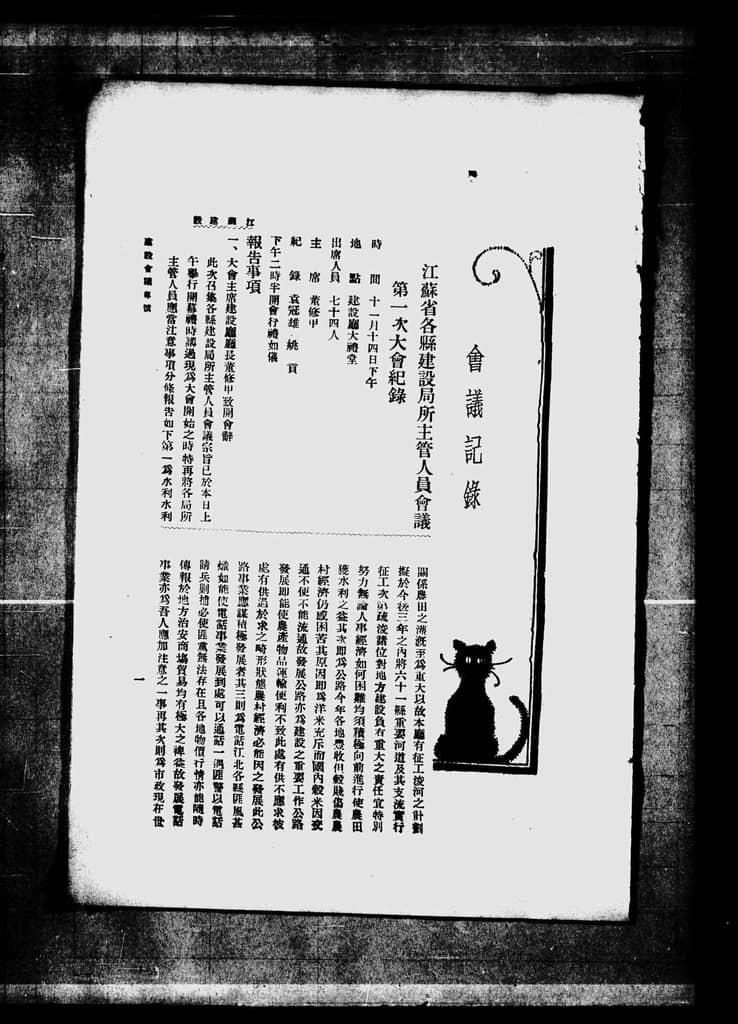 會議記錄
江蘇省各縣建設局所主管人員會議
第一次大會紀錄
時間 十一月十四日下午
地點 建設廳大禮堂
出席人員 七十四人
主席 董修甲
紀錄 袁冠雄 姚貢
下午二時半開會行禮如儀
報告事項
一、大會主席建設廳廳長董修甲致開會辭
此次召集各縣建設局所主管人員會議宗旨已於本日上
午舉行開幕禮時講過現為大會開始之時特再將各局所
主管人員應當注意事項分條報告如下第一為水利水利
關係農田之灌溉至為重大以故本廳有征工浚河之計劃
擬於今後三年之內將六十一縣重要河道及其支流實行
征工次第疏浚諸位對地方建設負有重大之責任宜特別
努力無論人事經濟如何困難均須積極向前進行使農田
獲水利之益其次即為公路今年各地豐收但穀賤傷農農
村經濟仍感困苦其原因即為洋米充斥而國內穀米因交
通不便不能流通故發展公路亦為建設之重要工作公路
發展即能使農產物品運輸便利不致此處有供不應求彼
處有供過於求之畸形狀態農村經濟必能因之發展此公
路事業應謀積極發展者其三則為電話江北各縣匪風甚
熾如能使電話事業發展到處可以通話一遇匪警以電話
請兵則捕必使匪黨無法存在且各地物價行情亦能隨時
傳報於地方治安商場貿易均有極大之裨益故發展電話
事業亦為吾人應加注意之一事再其次則為市政現在世
江蘇建設
建設會議專號
一